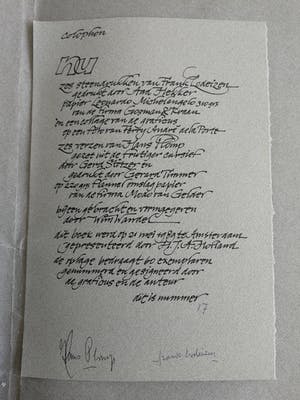 colophon
nu
zes steendrukken van Frank Lodeizen
gedrukt door Aad Hekker
papier Leonardo Michelangelo 310 grs
van de firma Gopmans & Kraan
en een collage van de graficus
op een foto van Ferry André de la Porte
zes verzen van Hans Plomp
gezet uit de trinité cursief
door Gerd Stötzer en
gedrukt door Gerard Timmer
op 270 grs Flannel omslagpapier
van de firma Modo van Gelder
bijeengebracht en vormgegeven
door Wim Wandel
dit boek werd op 21 mei 1987 te Amsterdam
gepresenteerd door H.J.A. Hofland
de oplage bedraagt 60 exemplaren
genummerd en gesigneerd door
de graficus en de auteur
dit is nummer
17
Hans Plomp
frank lodeizen